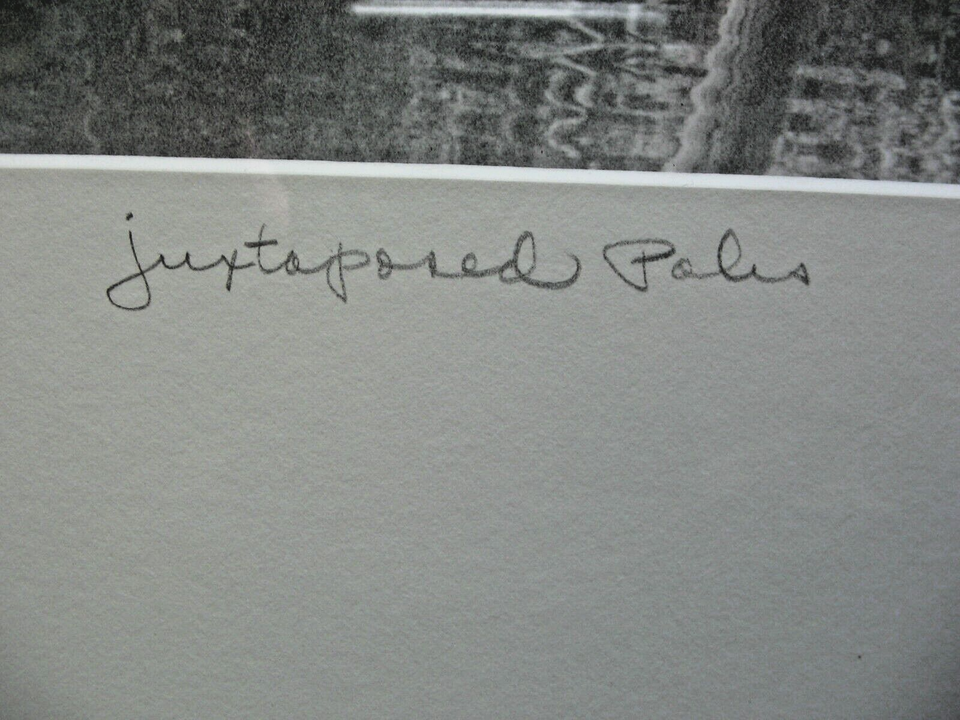 juxtaposed Poles